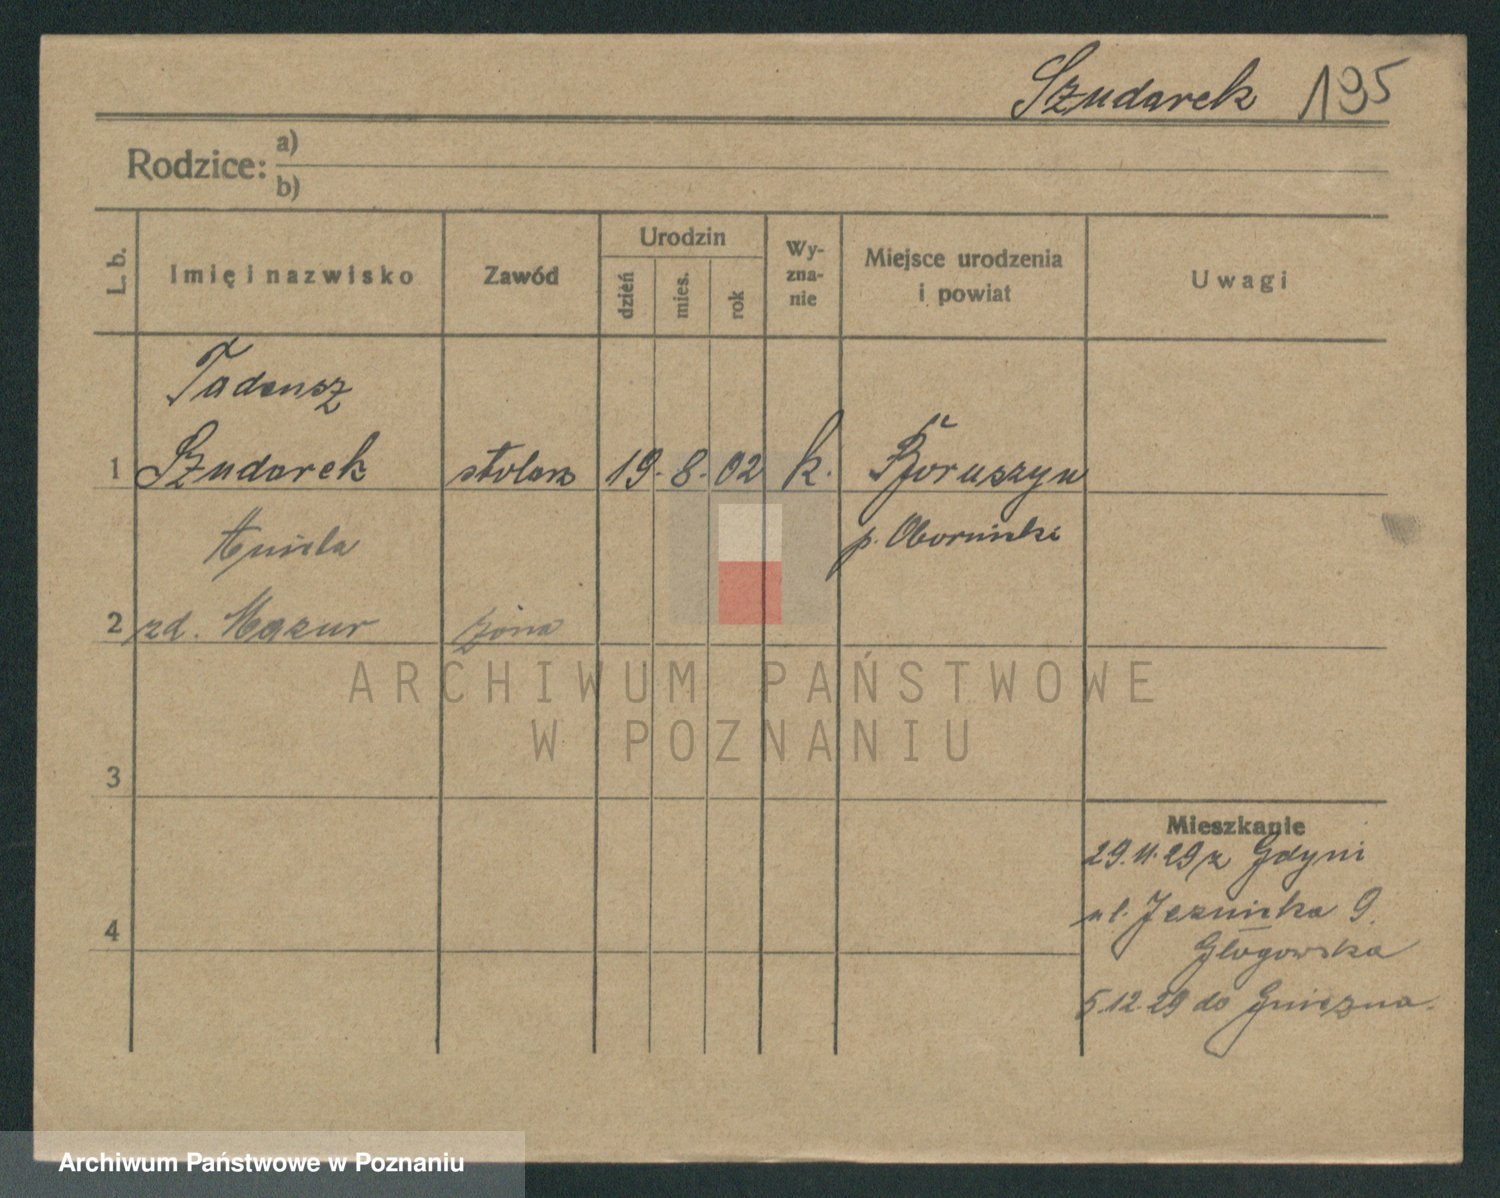 Szudarek 195
Rodzice: a)
b)
L. b.
Imię i nazwisko
Zawód
Urodzin
dzień
mies.
rok
Wy-
zna-
nie
Miejsce urodzenia
i powiat
Uwagi
Tadeusz
1 Szudarek stolarz 19. 8. 02 k. Boruszyn
Aniela p. Obornicki
2 zd. Mazur żona
ARCHIWUM PAŃSTWOWE
W POZNANIU
3
Mieszkanie
29.11.29 z Gdyni
ul. Jezuicka 9.
4
Głogowska
5.12.29 do Gniezna.
Archiwum Państwowe w Poznaniu